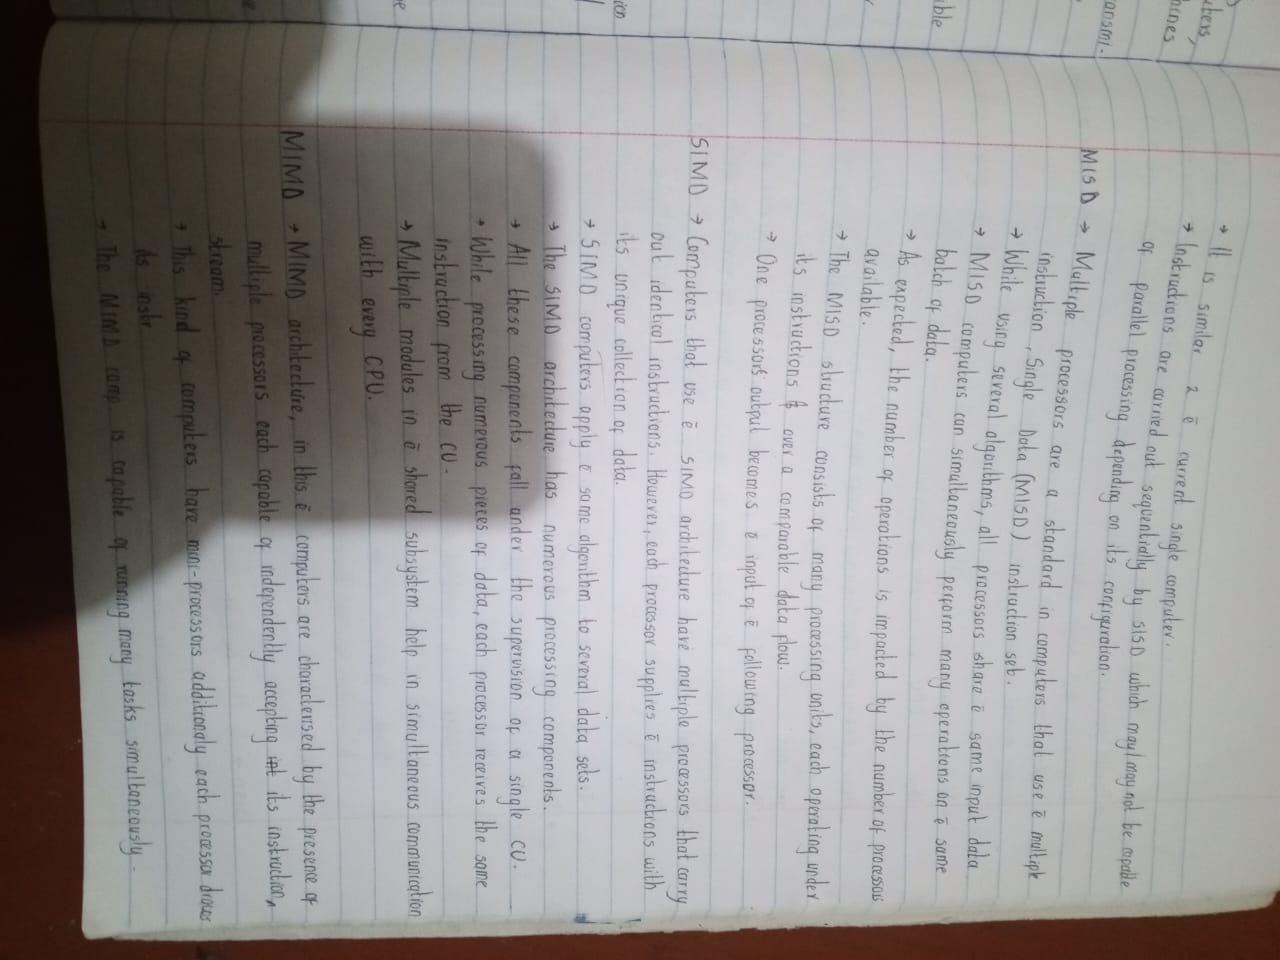 → It is similar 2 ē current single computer.
→ Instructions are carried out sequentially by SISD which may/may not be capable
of parallel processing depending on its configuration.
MISD → Multiple processors are a standard in computers that use ē multiple
instruction, Single Data (MISD) instruction set.
→ While using several algorithms, all processors share ē same input data
→ MISD computers can simultaneously perform many operations on ē same
batch of data.
→ As expected, the number of operations is impacted by the number of processors
available.
→ The MISD structure consists of many processing units, each operating under
its instructions & over a comparable data flow.
→ One processors output becomes ē input of ē following processor.
SIMD → Computers that use ē SIMD architecture have multiple processors that carry
out identical instructions. However, each processor supplies ē instructions with
its unique collection of data.
→ SIMD computers apply ē same algorithm to several data sets.
→ The SIMD architecture has numerous processing components.
→ All these components fall under the supervision of a single CU.
→ While processing numerous pieces of data, each processor receives the same
instruction from the CU.
→ Multiple modules in ē shared subsystem help in simultaneous communication
with every CPU.
MIMD → MIMD architecture, in this ē computers are characterised by the presence of
multiple processors each capable of independently accepting int its instruction,
stream.
→ This kind of computers have mini-processors additionaly each processor draws
its instr
→ The MIMD comp is capable of running many tasks simultaneously.